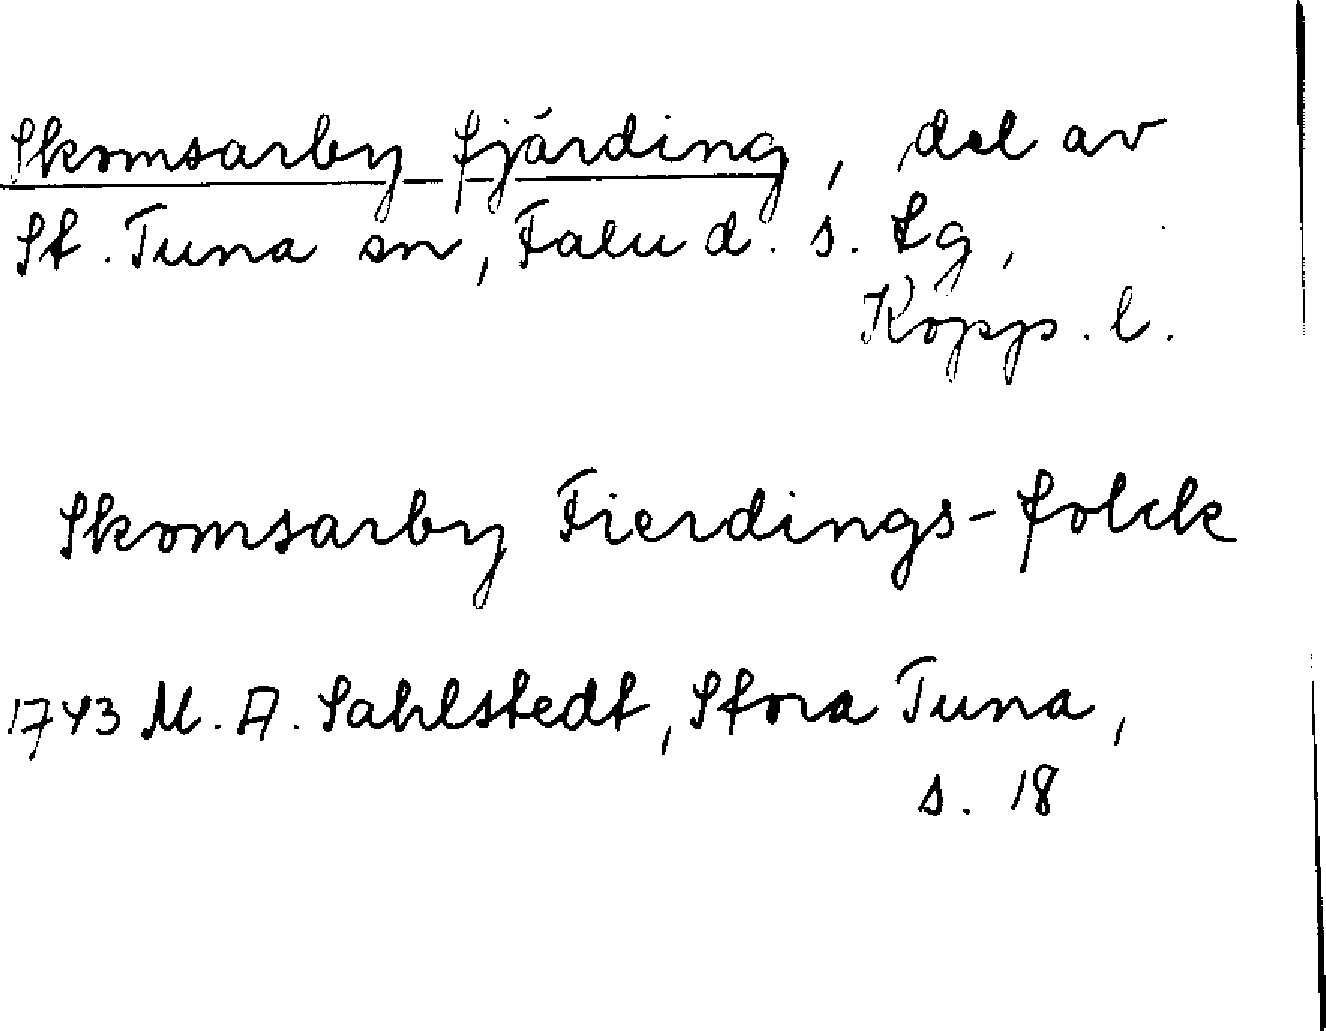 Skomsarby fjärding, del av
St. Tuna sn, Falu d. s. tg,
Kopp. l.
Skomsarby Fierdings-folck
1743 M. A. Sahlstedt, Stora Tuna,
s. 18